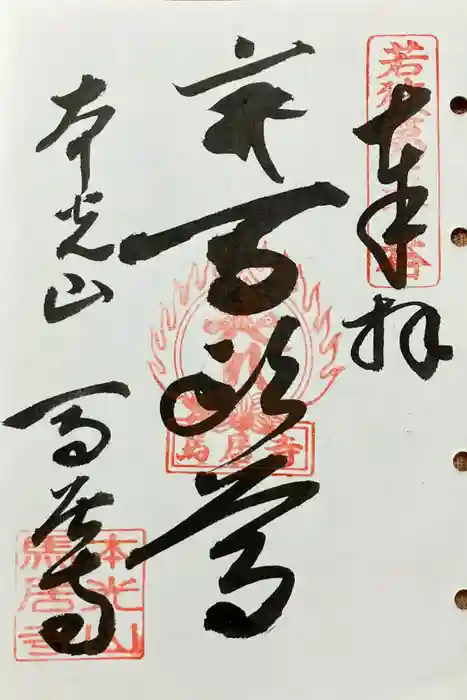 奉拝
若狭
番
弁馬頭尊
馬居寺
本光山 馬居寺
本光山
馬居寺